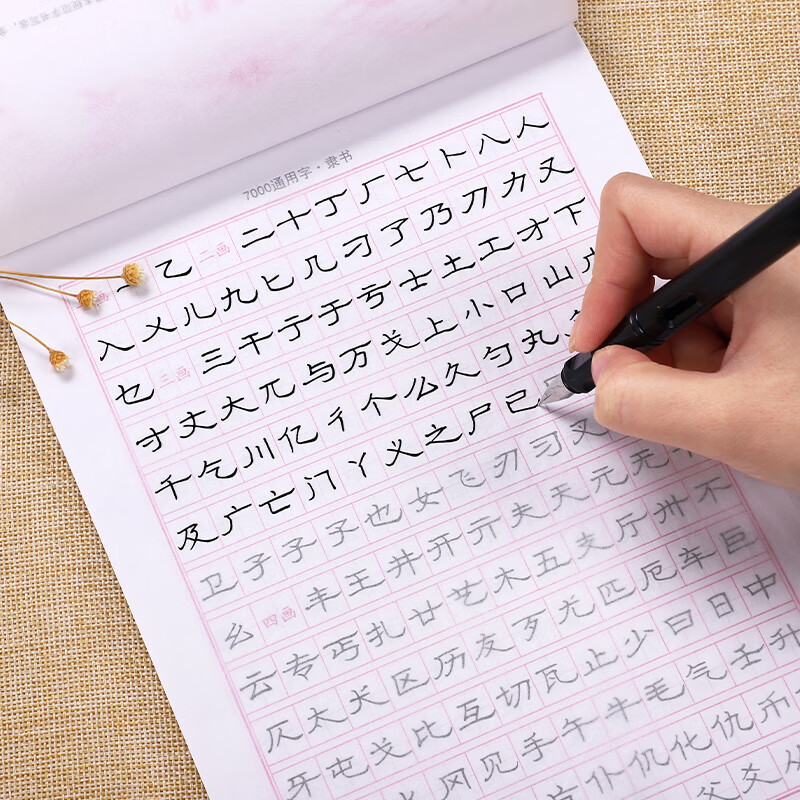 7000通用字·隶书
乙 二画 二 十 丁 厂 七 卜 八 人
入 乂 儿 九 匕 几 刁 了 乃 刀 力 又
乜 三画 三 干 亍 于 亏 士 土 工 才 下
寸 丈 大 兀 与 万 弋 上 小 口 山
千 乞 川 亿 彳 个 么 久 勺 丸
及 广 亡 门 丫 义 之 尸 已
卫 孑 子 孓 也 女 飞 刃 习 叉
幺 四画 丰 王 井 开 亓 夫 天 元 无
云 专 丐 扎 廿 艺 木 五 支 厅 卅 不
仄 太 犬 区 历 友 歹 尤 匹 厄 车 巨
牙 屯 戈 比 互 切 瓦 止 少 曰 日 中
风 见 手 午 牛 毛 气 壬 升
仆 仉 化 仇 币
父 爻